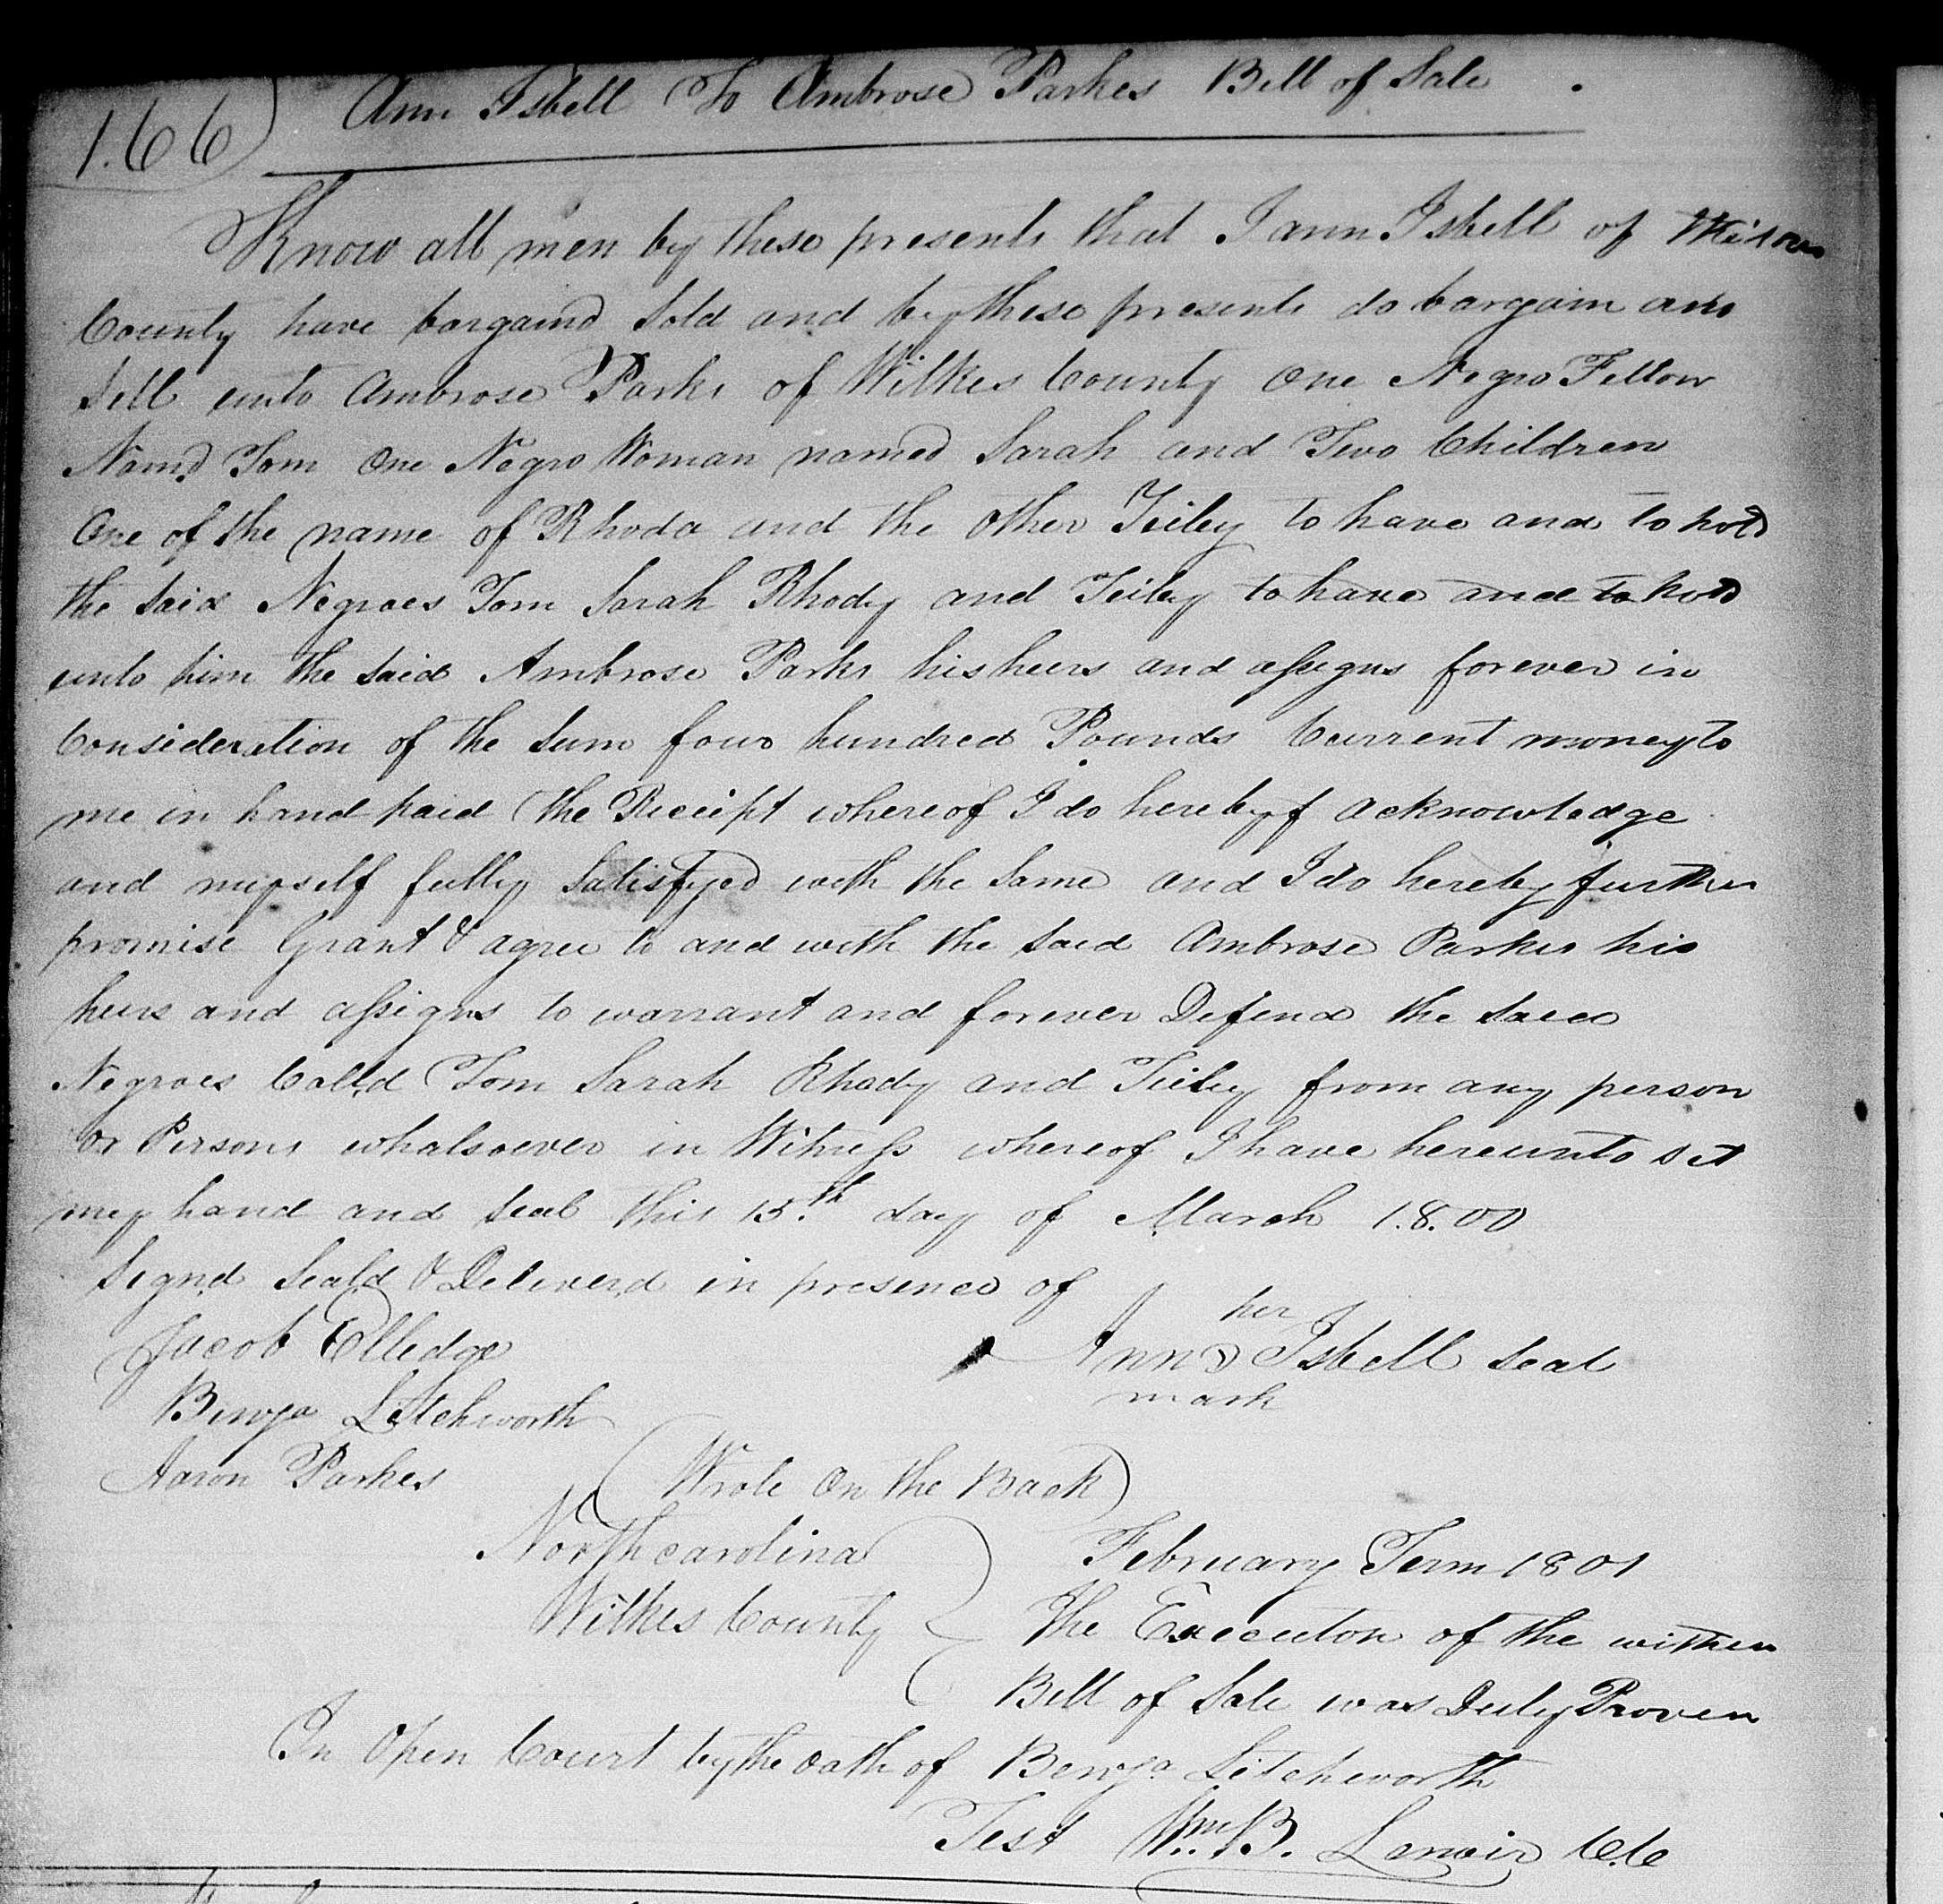 166) Ann Isbell To Ambrose Parkes Bill of Sale
Know all men by these presents that I ann Isbell of
County have bargaind Sold and by these presents do bargain and
Sell unto Ambrose Parks of Wilkes County One Negro Fellow
Namd Tom One Negro Woman named Sarah and Two Children
One of the name of Rhoda and the other to have and to hold
the Said Negroes Tom Sarah Rhody and to have and to hold
unto him the Said Ambrose Parks his heirs and assigns forever in
Consideration of the Sum four hundred Pounds Current money to
me in hand paid the Receipt whereof I do hereby acknowledge
and myself fully Satisfyed with the Same and I do hereby further
promise Grant & agree to and with the Said Ambrose Parkes his
heirs and assigns to warrant and forever Defend the Said
Negroes Calld Tom Sarah Rhody and from any person
or Persons whatsoever in Witness whereof I have hereunto set
my hand and Seal this 15th day of March 1800
Signd Seald & Deliverd in presence of
her
Jacob Elledge Ann Isbell Seal
mark
Benja Litchworth
Aaron Parkes (Wrote On the Back)
North carolina February Term 1801
Wilkes County The Execution of the within
Bill of Sale was Duly Proven
In Open Court by the oath of Benja Litchworth
Test Wm. B. Lenoir CC